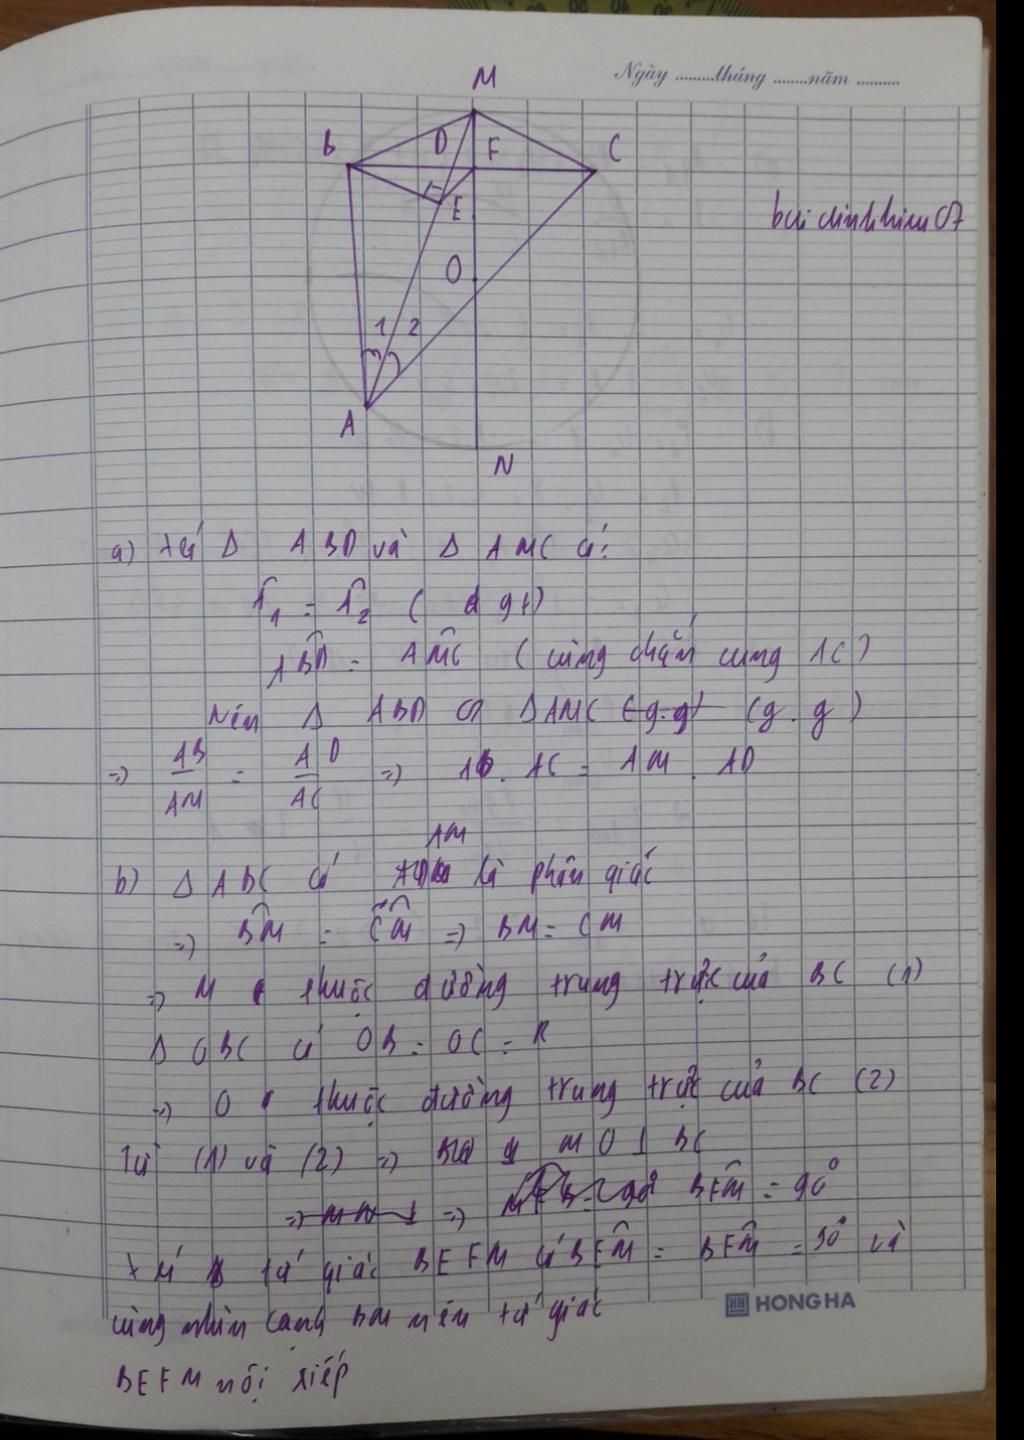 Ngày .........tháng ........năm ..........
M
B D F C
E
O
1 2
A
N
a) Xét Δ ABD và Δ AMC có:
Â1 = Â2 ( gt)
ABD = AMC ( cùng chắn cung AC)
Nên Δ ABD ∽ ΔAMC (g.g) (g.g)
=> AB/AM = AD/AC => AB. AC = AM. AD
b) Δ ABC có AM là phân giác
=> BM = CM => BM = CM
=> M thuộc đường trung trực của BC (1)
Δ OBC có OB = OC = R
=> O thuộc đường trung trực của BC (2)
Từ (1) và (2) => MO ⊥ BC
=> BFM = 90°
Xét tứ giác BEFM có BEM = BFM = 90° và
cùng nhìn cạnh BM nên tứ giác
BEFM nội tiếp
HH HONG HA